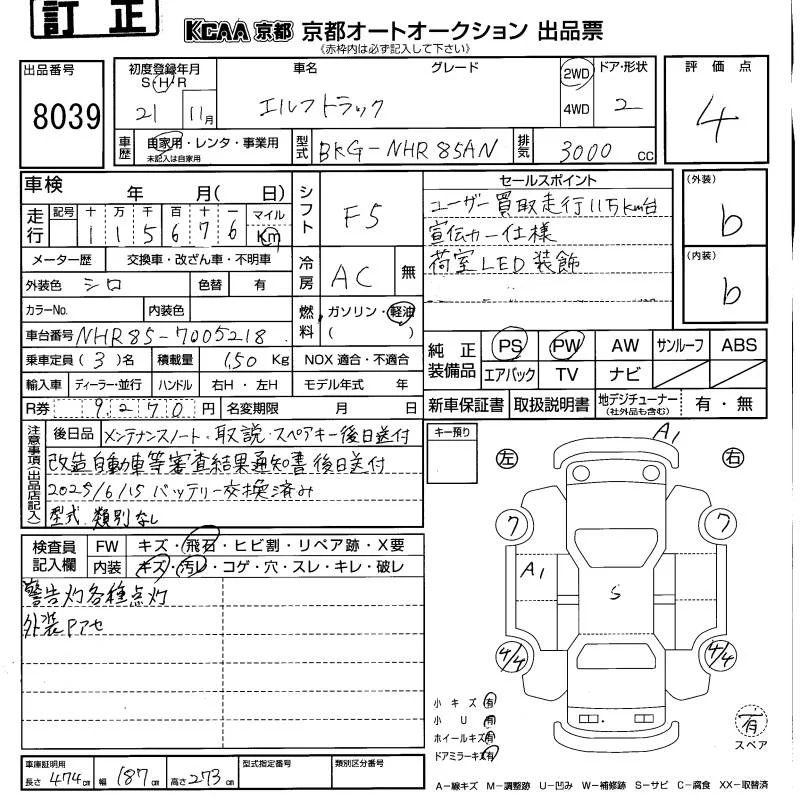 訂正
KCAA 京都 京都オートオークション 出品票
《赤枠内は必ず記入して下さい》
出品番号
8039
初度登録年月
S・H・R
21 11月
車名 グレード
エルフトラック
2WD
4WD
ドア・形状
2
評価点
4
車歴
自家用・レンタ・事業用
未記入は自家用
型式
BKG-NHR85AN
排気
3000 cc
車検 年 月( 日)
走行
記号 十 万 千 百 十 一 マイル
1 1 5 6 7 6 Km
シフト
F5
セールスポイント
ユーザー買取走行11万km台
宣伝カー仕様
荷室LED装飾
(外装)
b
(内装)
b
メーター歴 交換車・改ざん車・不明車
外装色 シロ 色替 有
冷房
AC 無
カラーNo. 内装色
燃料
ガソリン・軽油
( )
車台番号 NHR85-7005218
乗車定員(3)名 積載量 150 Kg NOX 適合・不適合
輸入車 ディーラー・並行 ハンドル 右H・左H モデル年式 年
R券 9,270円 名変期限 月 日
純正装備品
PS PW AW サンルーフ ABS
エアバック TV ナビ
新車保証書 取扱説明書 地デジチューナー(社外品も含む) 有・無
注意事項(出品店記入)
後日品 メンテナンスノート・取説・スペアキー後日送付
改造自動車等審査結果通知書後日送付
2025/6/15バッテリー交換済み
型式 類別なし
キー預り
検査員記入欄
FW キズ・飛石・ヒビ割・リペア跡・X要
内装 キズ・汚レ・コゲ・穴・スレ・キレ・破レ
警告灯各種点灯
外装Pアセ
A1
左 右
7 7
A1
S
4/4 4/4
小キズ 有
小U 有
ホイールキズ 有
ドアミラーキズ 有
有
スペア
車庫証明用
長さ 474cm 幅 187cm 高さ 273cm
型式指定番号 類別区分番号
A-線キズ M-調整跡 U-凹み W-補修跡 S-サビ C-腐食 XX-取替済